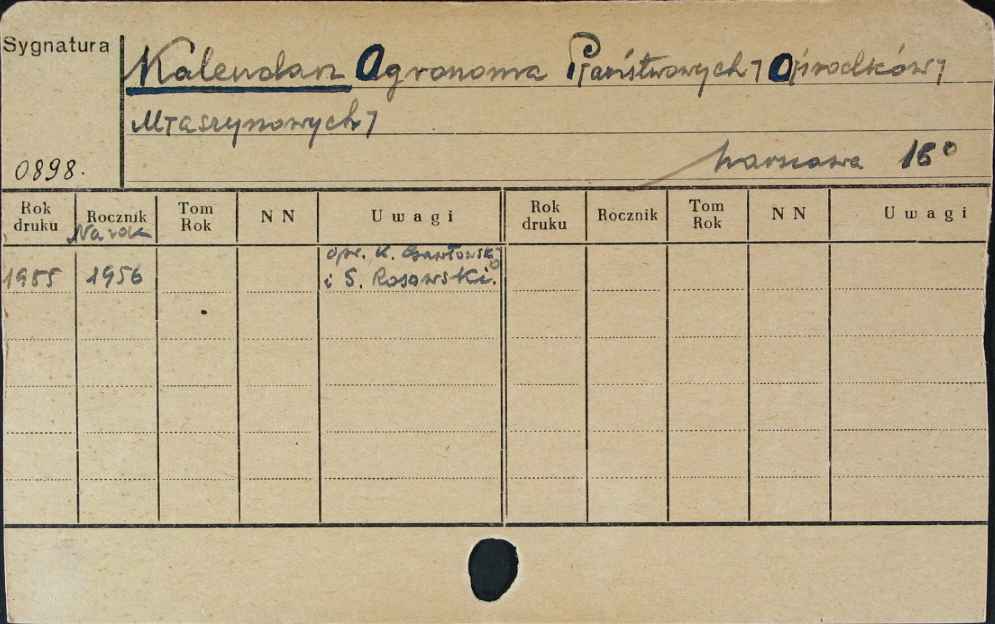 Sygnatura
Kalendarz Agronoma P[aństwowych] O[środków]
M[aszynowych]
0898.
Warszawa 16°
Rok druku Rocznik Tom Rok NN Uwagi Rok druku Rocznik Tom Rok NN Uwagi
Na rok
opr. K.
1955 1956 i S. Rosowski.